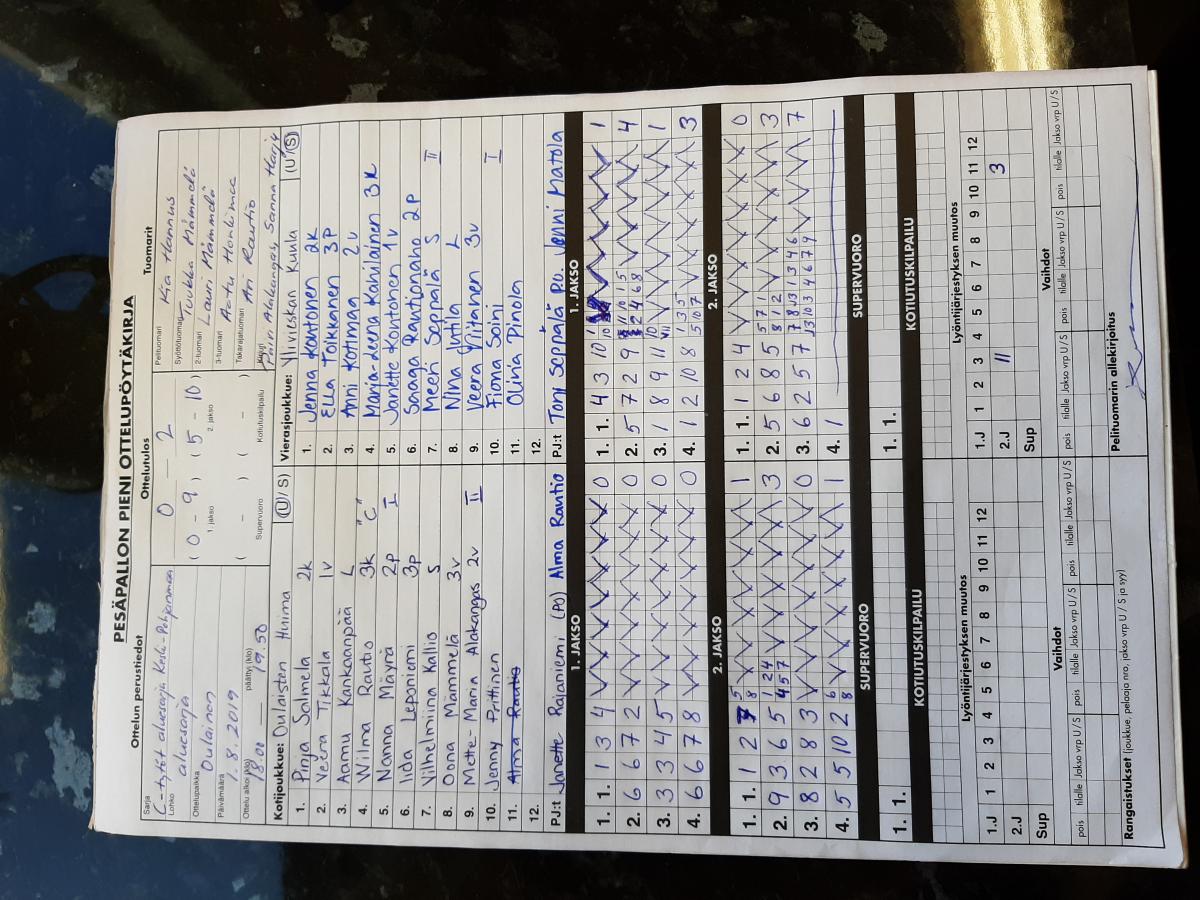 PESÄPALLON PIENI OTTELUPÖYTÄKIRJA
Ottelun perustiedot
Sarja
C-tytöt aluesarja Keski-Pohjanmaa
Lohko
aluesarja
Ottelupaikka
Oulainen
Päivämäärä
1.8.2019
Ottelu alkoi (klo)
18.00
päättyi (klo)
19.50
Ottelutulos
0 – 2
( 0 – 9 ) ( 5 – 10 )
1. jakso 2. jakso
( – ) ( – )
Supervuoro Kotiutuskilpailu
Tuomarit
Pelituomari
Kia Hannus
Syöttötuomari
Tuukka Mämmelä
2-tuomari
Lauri Mämmelä
3-tuomari
Aatu Honkimaa
Takarajatuomari
Ari Rautio
Kirjuri
Päivi Alakangas, Sanna Harju
Kotijoukkue: Oulaisten Huima (U / S)
1. Pinja Salmela 2k
2. Veera Tikkala 1v
3. Aamu Kankaanpää L
4. Wilma Rautio 3k "C"
5. Nanna Mäyrä 2p I
6. Iida Leponiemi 3p
7. Vilhelmiina Kallio S
8. Oona Mämmelä 3v
9. Mette-Maria Alakangas 2v II
10. Jenny Prittinen
11. Alma Rautio
12.
PJ:t Janette Rajaniemi (PO) Alma Rautio
Vierasjoukkue: Ylivieskan Kuula (U / S)
1. Jenna Kontonen 2k
2. Ella Tolkkanen 3P
3. Anni Kotimaa 2v
4. Marja-Leena Kahilainen 3k
5. Janette Kontonen 1v
6. Saaga Rautionaho 2P
7. Meeri Seppälä S II
8. Nina Juntila L
9. Veera Niitanen 3v
10. Fiona Soini I
11. Olivia Pinola
12.
PJ:t Tony Seppälä PO. Jenni Matola
1. JAKSO
1. 1. 1 3 4 0
2. 6 6 7 2 0
3. 3 3 4 5 0
4. 6 6 7 8 0
1. JAKSO
1. 1. 4 3 10 1
2. 5 7 2 9 4
3. 1 8 9 11 1
4. 1 2 10 8 3
2. JAKSO
1. 1. 1 2 1
2. 9 3 6 5 3
3. 8 2 8 3 0
4. 5 5 10 2 1
2. JAKSO
1. 1. 1 2 4 0
2. 5 6 8 5 3
3. 6 2 5 7 7
4. 1
SUPERVUORO
1. 1.
KOTIUTUSKILPAILU
SUPERVUORO
1. 1.
KOTIUTUSKILPAILU
Lyöntijärjestyksen muutos
1 2 3 4 5 6 7 8 9 10 11 12
1.J
2.J
Sup
Vaihdot
pois tilalle Jakso vrp U / S pois tilalle Jakso vrp U / S pois tilalle Jakso vrp U / S
Lyöntijärjestyksen muutos
1 2 3 4 5 6 7 8 9 10 11 12
1.J
2.J 11 3
Sup
Vaihdot
pois tilalle Jakso vrp U / S pois tilalle Jakso vrp U / S pois tilalle Jakso vrp U / S
Rangaistukset (joukkue, pelaaja nro, jakso vrp U / S ja syy)
Pelituomarin allekirjoitus